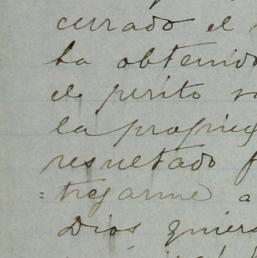 cerrado el
ha obtenido
el perito
la propie
resultado f
=tregarme a
Dios quiera